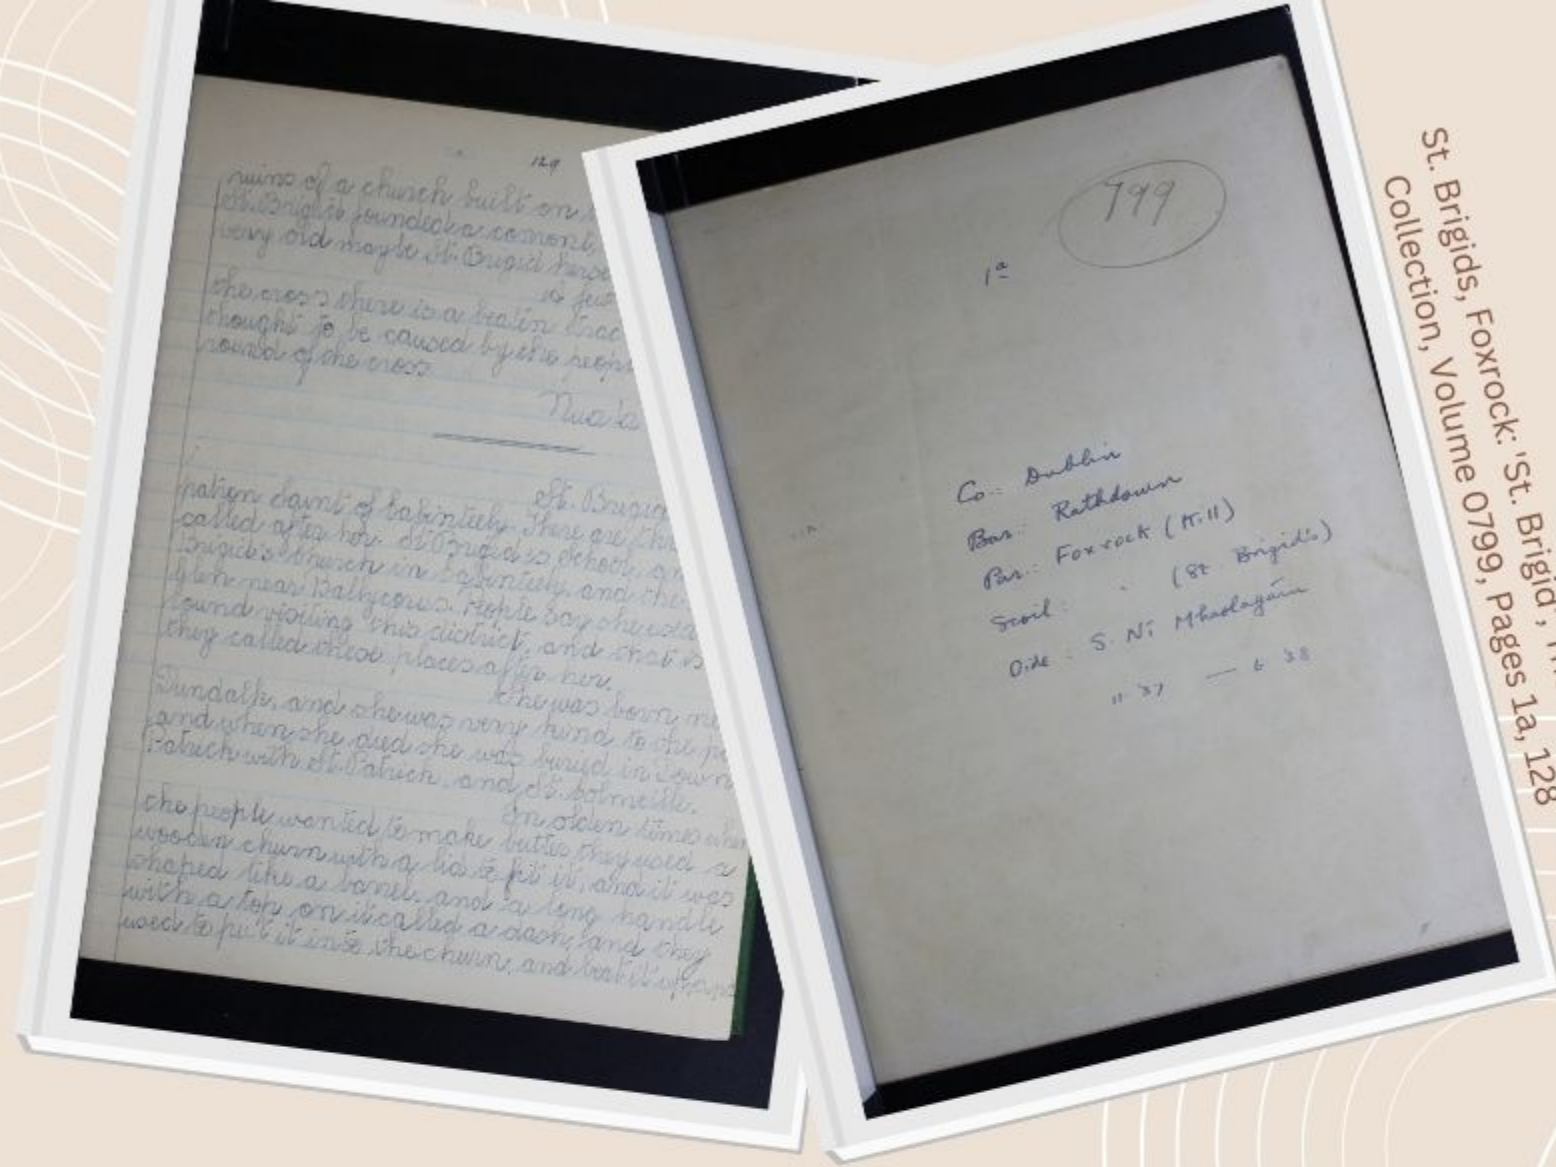 129
ruins of a church built on
St. Brigid founded a convent
very old maybe St. Brigid herse
10 feet
the cross there is a beaten trac
thought to be caused by the peop
round of the cross.
Nuala
St. Brigid
patron Saint of Cabinteely. There are thr
called after her. St Brigid's School,
Brigid's Church in Cabinteely, and the
glen near Ballycorus. People say she
round visiting this district, and that is
they called these places after her.
She was born ne
Dundalk, and she was very kind to the p
and when she died she was buried in Down
Patrick with St. Patrick, and St. Colmcille.
In olden times when
the people wanted to make butter they used a
wooden churn with a lid to fit it, and it was
shaped like a barrel, and a long handle
with a top on it called a dash, and they
used to put it into the churn, and beat it
799
1a
Co.: Dublin
Bar.: Rathdown
Par.: Foxrock (K.11)
Scoil: (St. Brigid's)
Oide: S. Ní Mhaolagáin
11 '37 — 6 38
St. Brigids, Foxrock: 'St. Brigid',
Collection, Volume 0799, Pages 1a, 128